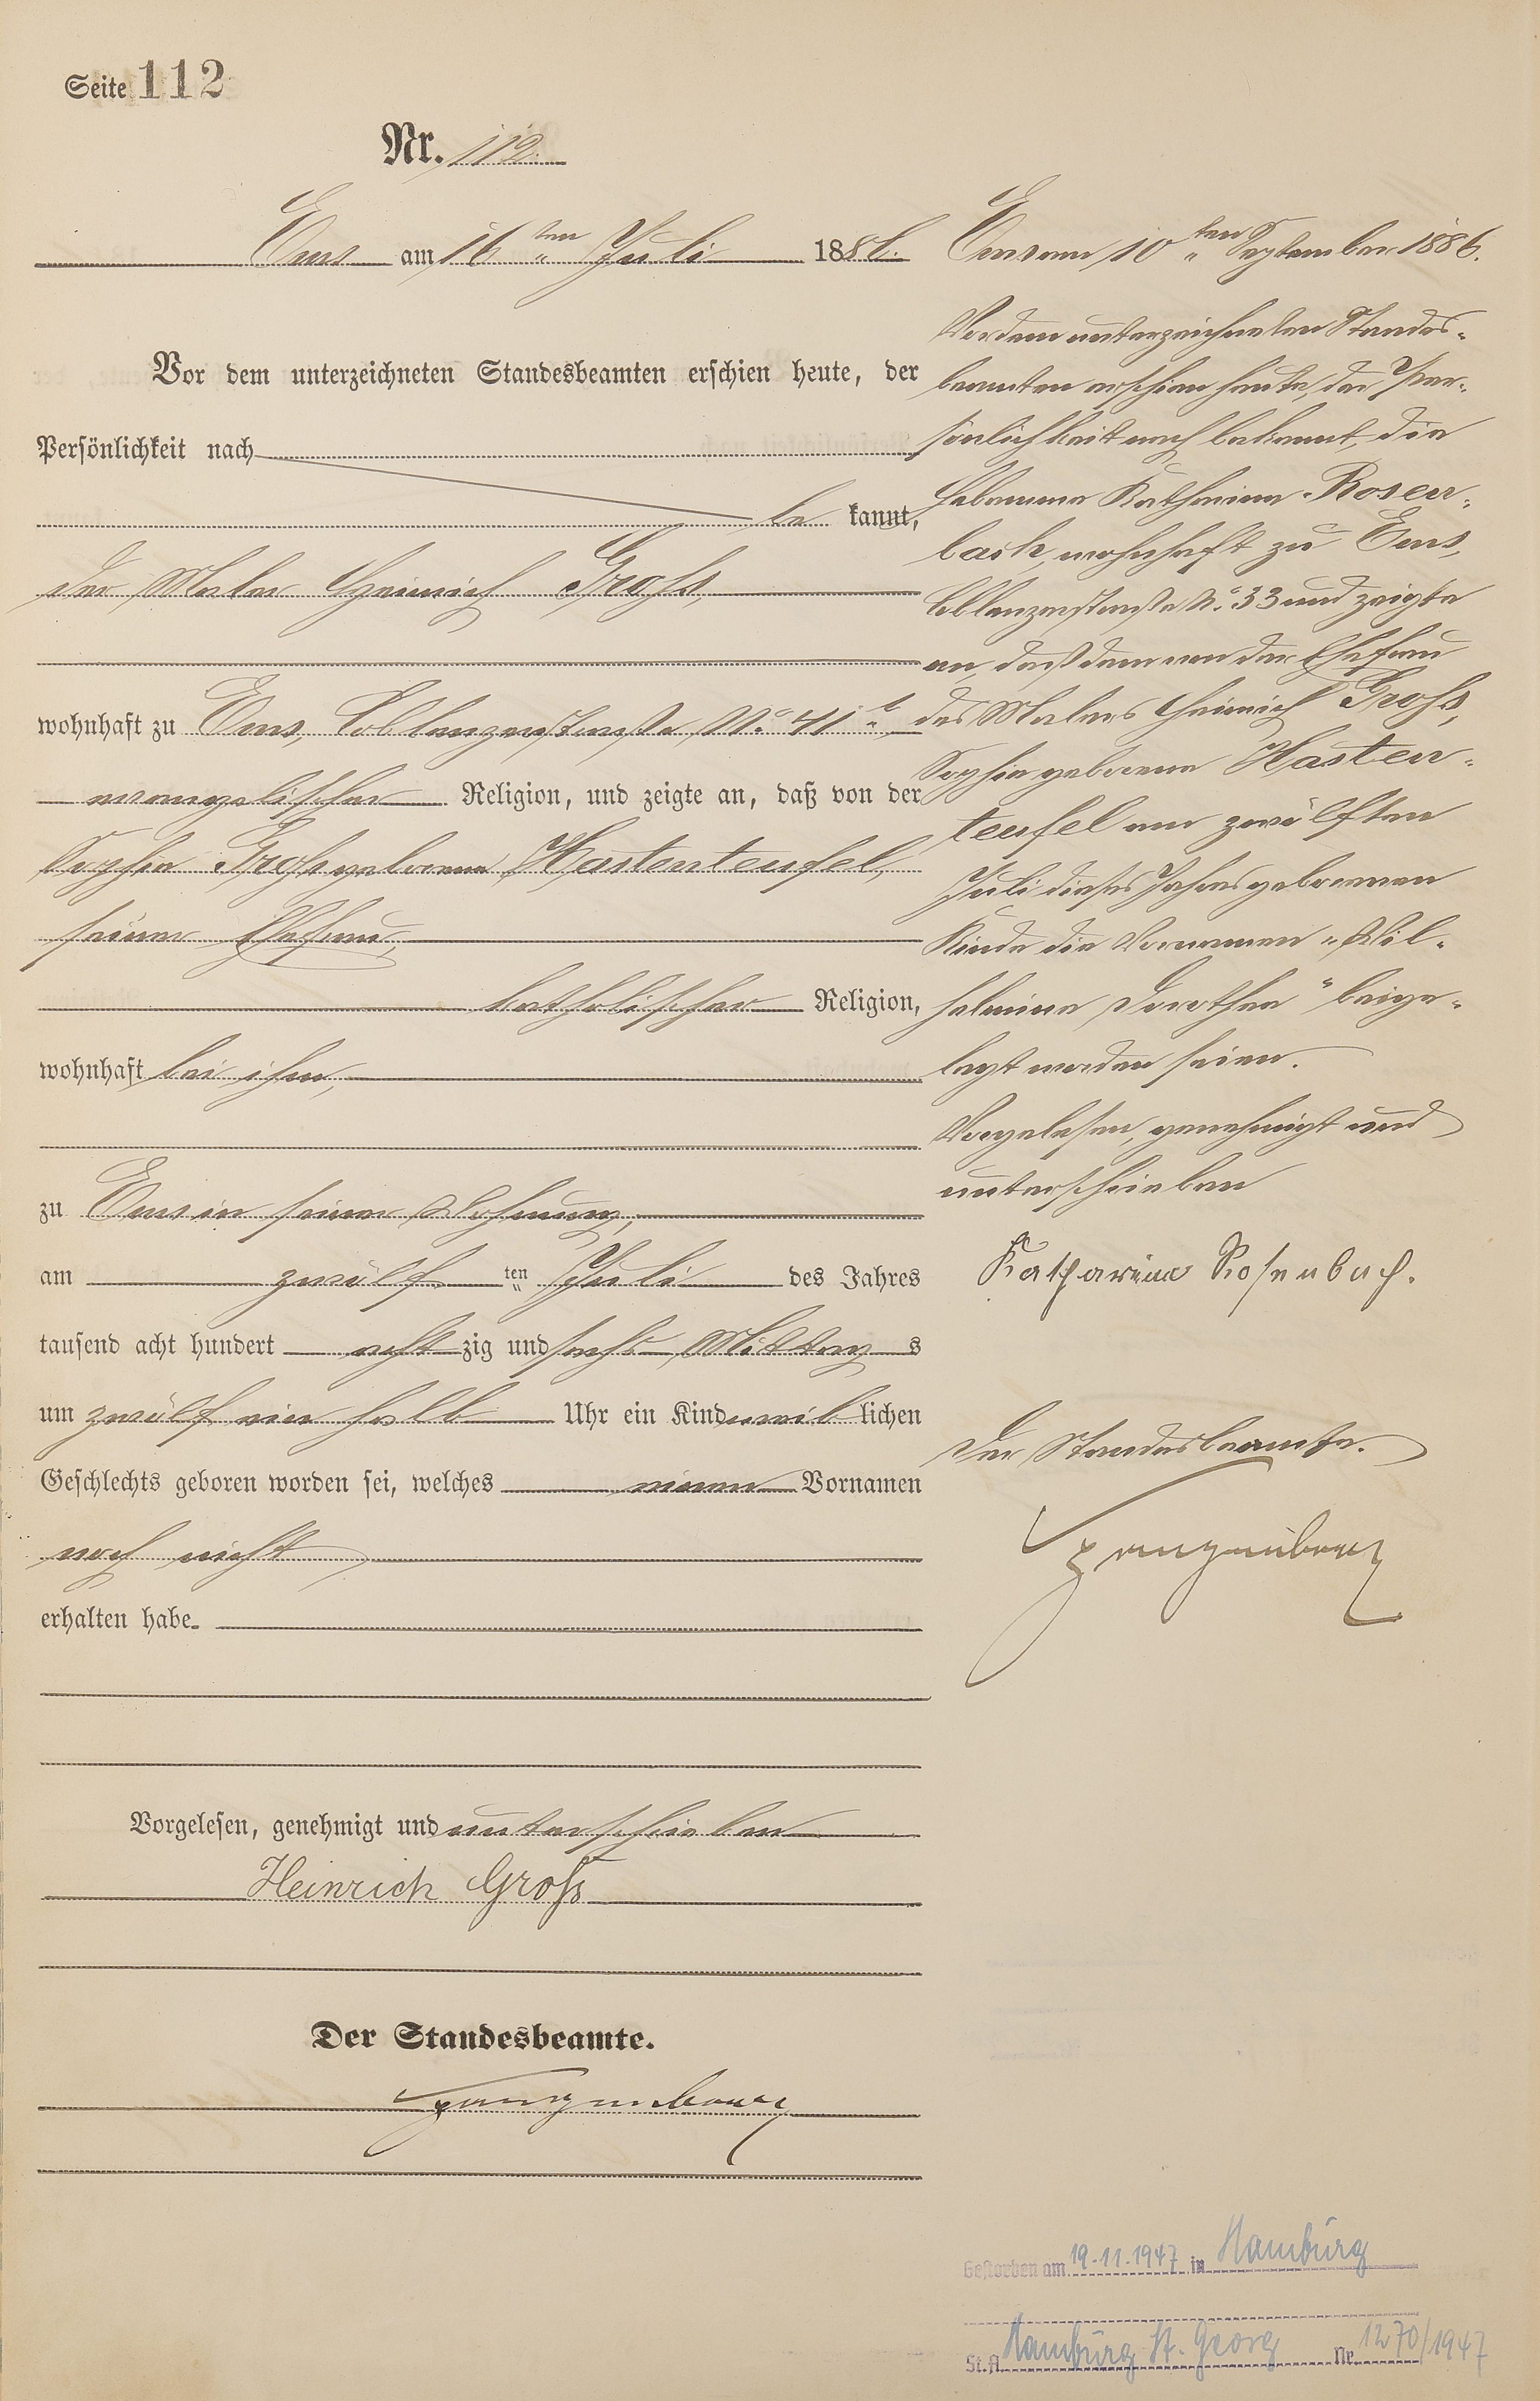 Seite 112
Nr. 112.
Ems am 16ten Juli 1886.
Vor dem unterzeichneten Standesbeamten erschien heute, der
Persönlichkeit nach
be kannt,
der Maler Heinrich Groß,
wohnhaft zu Ems, Coblenzerstraße No. 41 b,
evangelischer Religion, und zeigte an, daß von der
Sophie Groß geborene Hastenteufel,
seiner Ehefrau,
katholischer Religion,
wohnhaft bei ihm,
zu Ems in seiner Wohnung,
am zwölf ten Juli des Jahres
tausend acht hundert acht zig und sechs Mittag s
um zwölf ein halb Uhr ein Kind weib lichen
Geschlechts geboren worden sei, welches einen Vornamen
noch nicht
erhalten habe.
Vorgelesen, genehmigt und unterschrieben
Heinrich Groß
Der Standesbeamte.
Ems am 10ten September 1886.
Vor dem unterzeichneten Standes-
beamten erschien heute, der Per-
sönlichkeit nach bekannt, die
Hebamme Katharina Rosen-
bach, wohnhaft zu Ems,
Coblenzerstraße No. 33 und zeigte
an, daß dem von der Ehefrau
des Malers Heinrich Groß,
Sophie geborene Hasten-
teufel am zwölften
Juli dieses Jahres geborenen
Kinde die Vornamen „Wil-
helmine Dorothea“ beige-
legt worden seien.
Vorgelesen, genehmigt und
unterschrieben
Katharina Rosenbach.
Der Standesbeamte.
Gestorben am 19.11.1947 in Hamburg
St.A. Hamburg St. Georg Nr. 1270/1947